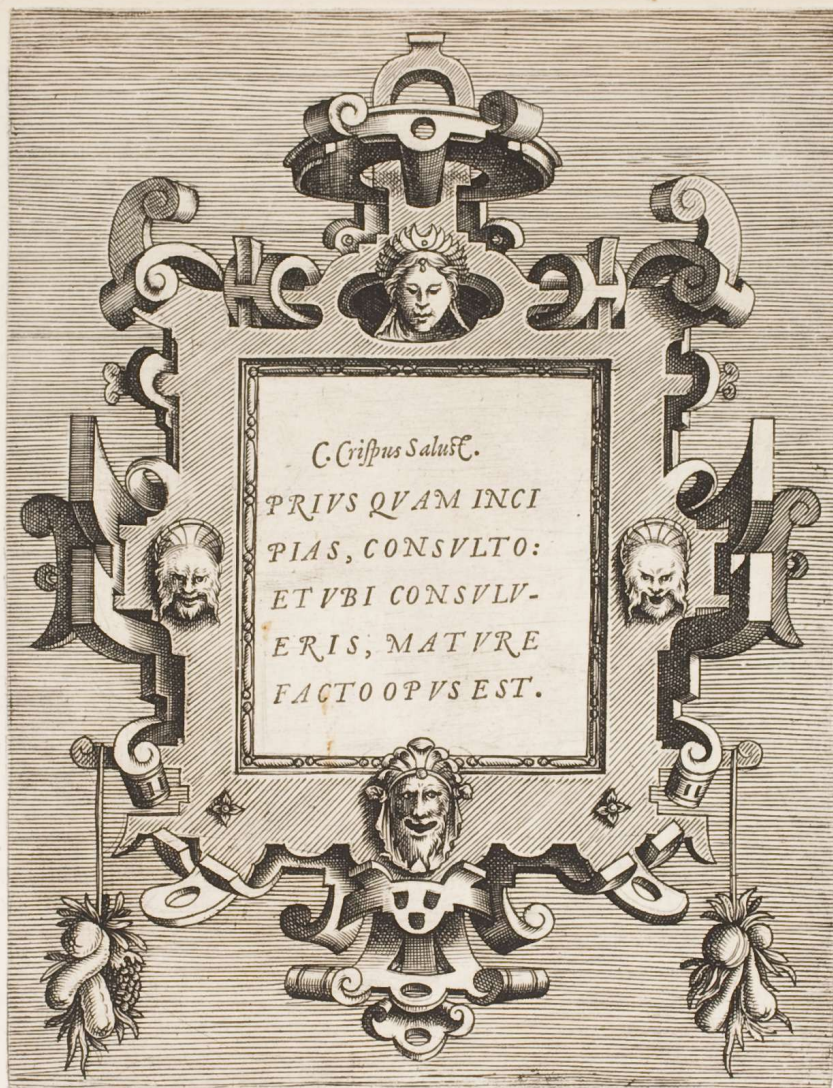 C. Criſpus Saluſt.
PRIVS QVAM INCI
PIAS, CONSVLTO:
ET VBI CONSVLV-
ERIS, MATVRE
FACTO OPVS EST.